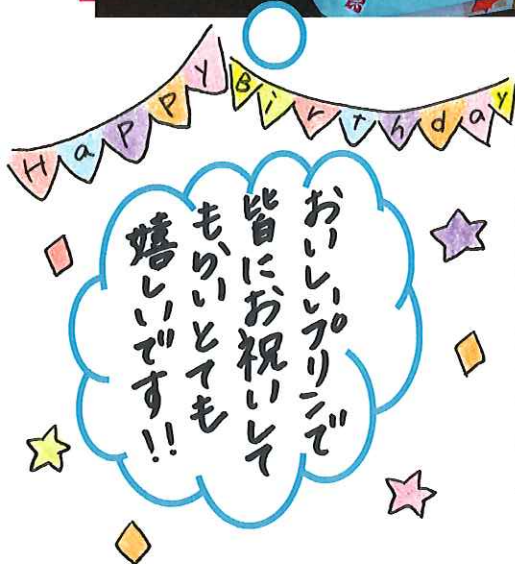 Happy Birthday
おいしいプリンで
皆にお祝いして
もらいとても
嬉しいです!!